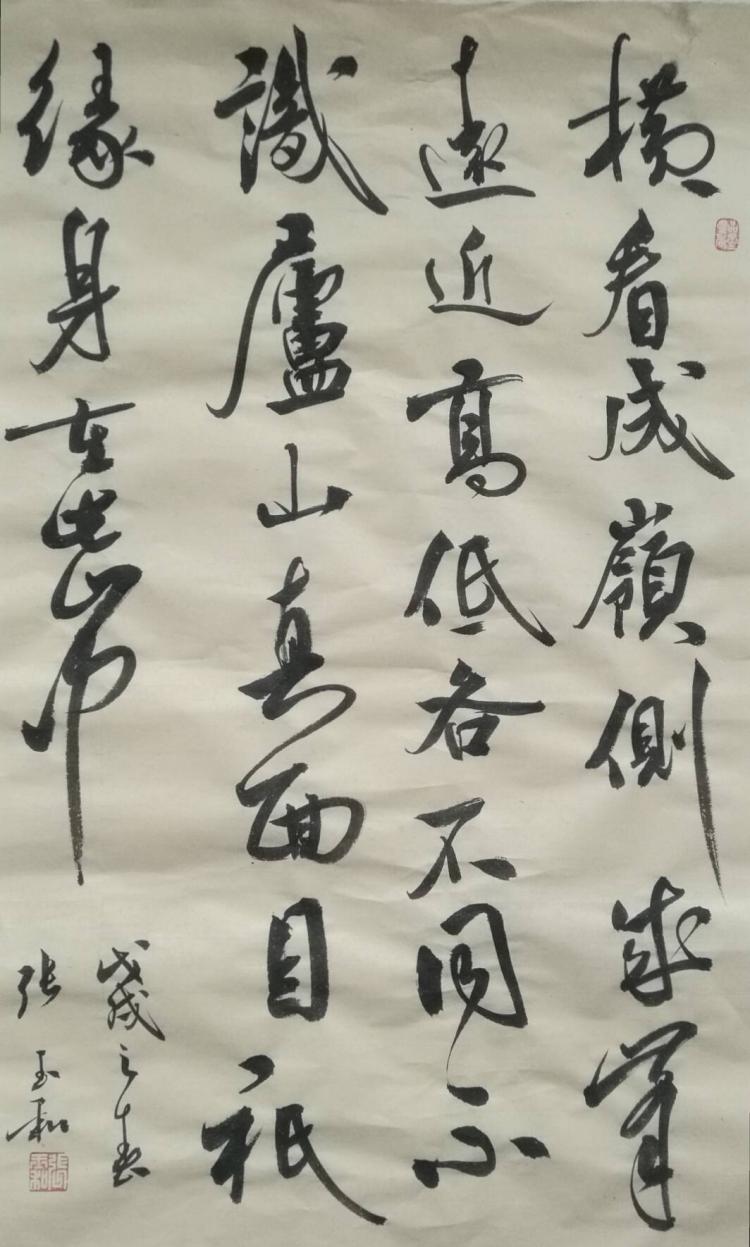 橫看成嶺側成峯
遠近高低各不同不
識廬山真面目祇
緣身在此山中
戊戌之春
张玉和